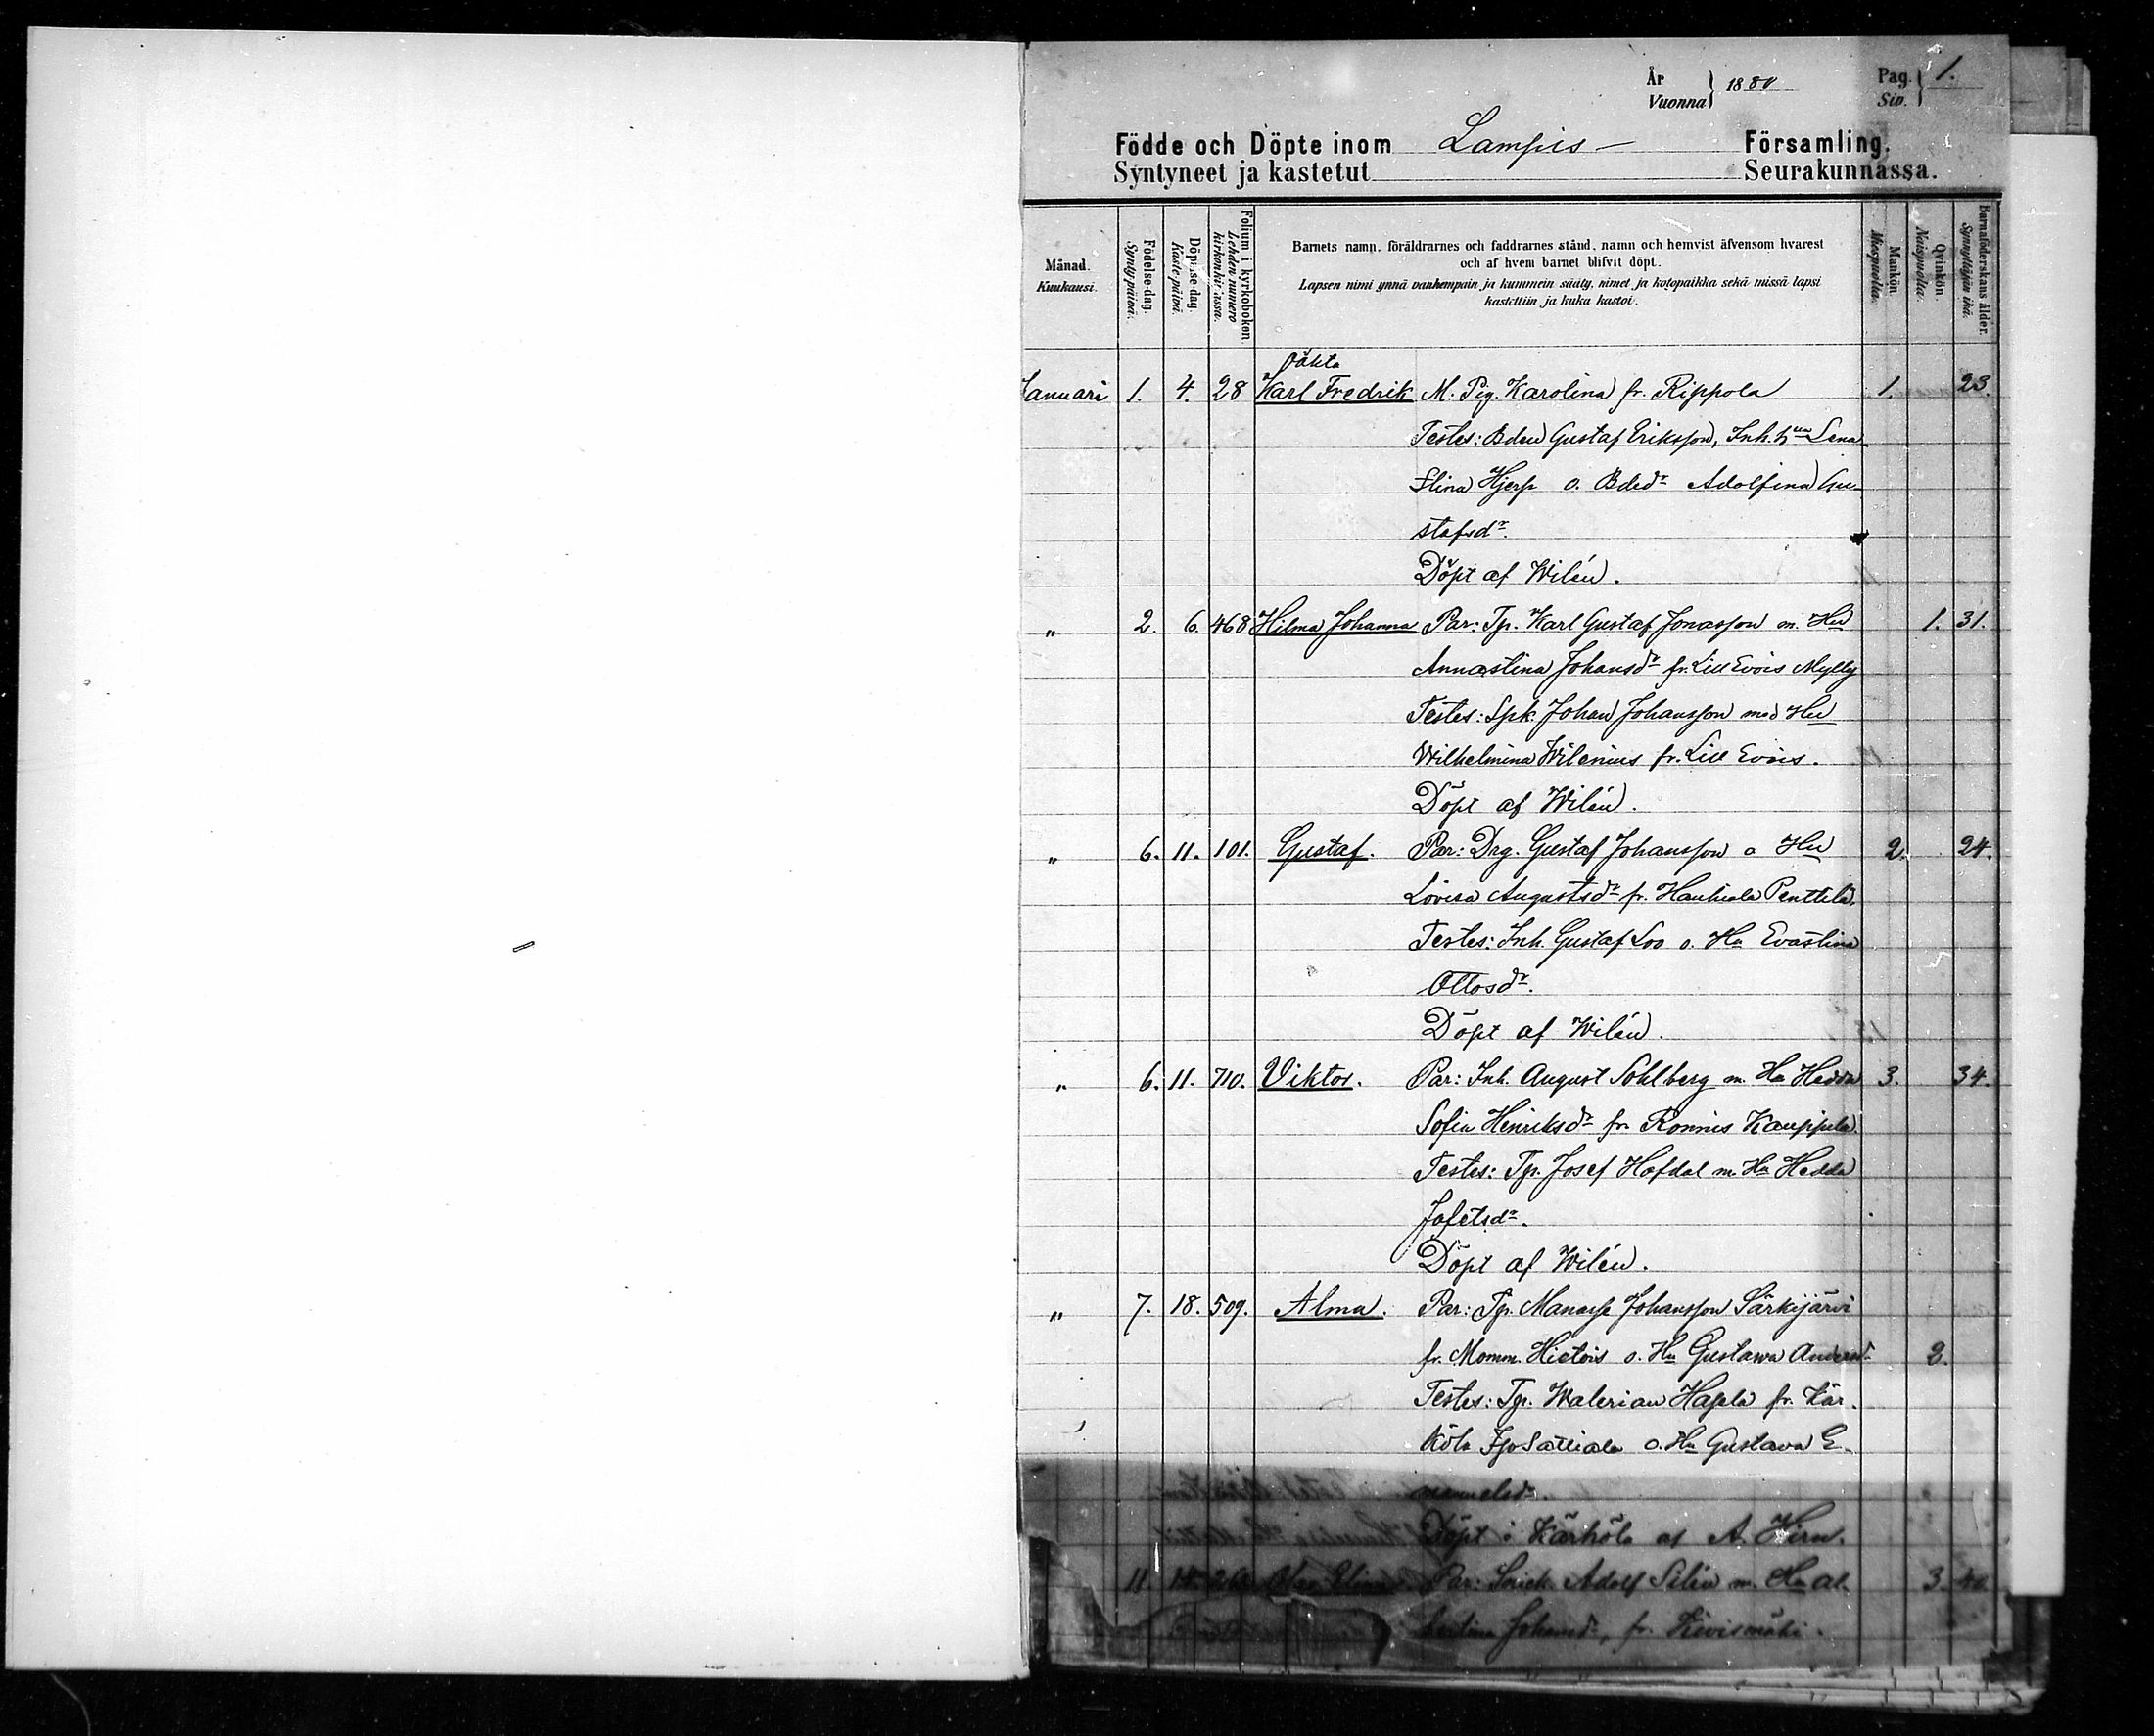 År Vuonna 1880 Pag. Siv. 1.
Födde och Döpte inom Lampis Församling.
Syntyneet ja kastetut Seurakunnassa.
Månad. Kuukausi.
Födelse-dag. Syntypäivä.
Döpelse-dag. Kastepäivä.
Folium i kyrkoboken. Lehden numero kirkonkirjassa.
Barnets namn, föräldrarnes och faddrarnes stånd, namn och hemvist äfvensom hvarest
och af hvem barnet blifvit döpt.
Lapsen nimi ynnä vanhempain ja kummein sääty, nimet ja kotopaikka sekä missä lapsi
kastettiin ja kuka kastoi.
Mankön. Miespuolia.
Qvinkön. Naispuolia.
Barnaföderskans ålder. Synnyttäjän ikä.
Oäkta
Januari 1. 4. 28 Karl Fredrik M. Pig. Karolina fr. Rippola 1. 23.
Testes: Bden Gustaf Eriksson, Inh. Lena
Stina Hjerp o. Bdedr Adolfina Gu-
stafsdr.
Döpt af Wilén.
" 2. 6. 468 Hilma Johanna Par: Tp. Karl Gustaf Jonasson m. Hu 1. 31.
Annastina Johansdr fr. Lill Evois Mylly
Testes: Spk. Johan Johansson med Hu
Wilhelmina Wilenius fr. Lill Evois.
Döpt af Wilén.
" 6. 11. 101. Gustaf. Par: Drg. Gustaf Johansson o Hu 2. 24.
Lovisa Augustsdr fr. Hauhiala Penttilä.
Testes: Inh. Gustaf Loo o. Hu Evastina
Ottosdr.
Döpt af Wilén.
" 6. 11. 710. Viktor. Par: Inh. August Sohlberg m. Hu Hedda 3. 34.
Sofia Henriksdr fr Ronnis Kauppila.
Testes: Tp. Josef Hofdal m. Hu Hedda
Jafetsdr.
Döpt af Wilén.
" 7. 18. 509. Alma. Par: Tp. Manasse Johansson Särkijärvi
fr. Momm. Hietois o. Hu Gustawa Andersd. 2.
Testes: Tp. Walerian Hagela fr. Kär-
köla o. Hu Gustava E-
manuelsdr.
Döpt i Kärköla af A. Hirn.
11. 14. Par: Adolf Silén m. Hu Al- 3. 40.
bertina Johansdr, fr. Kivismäki.